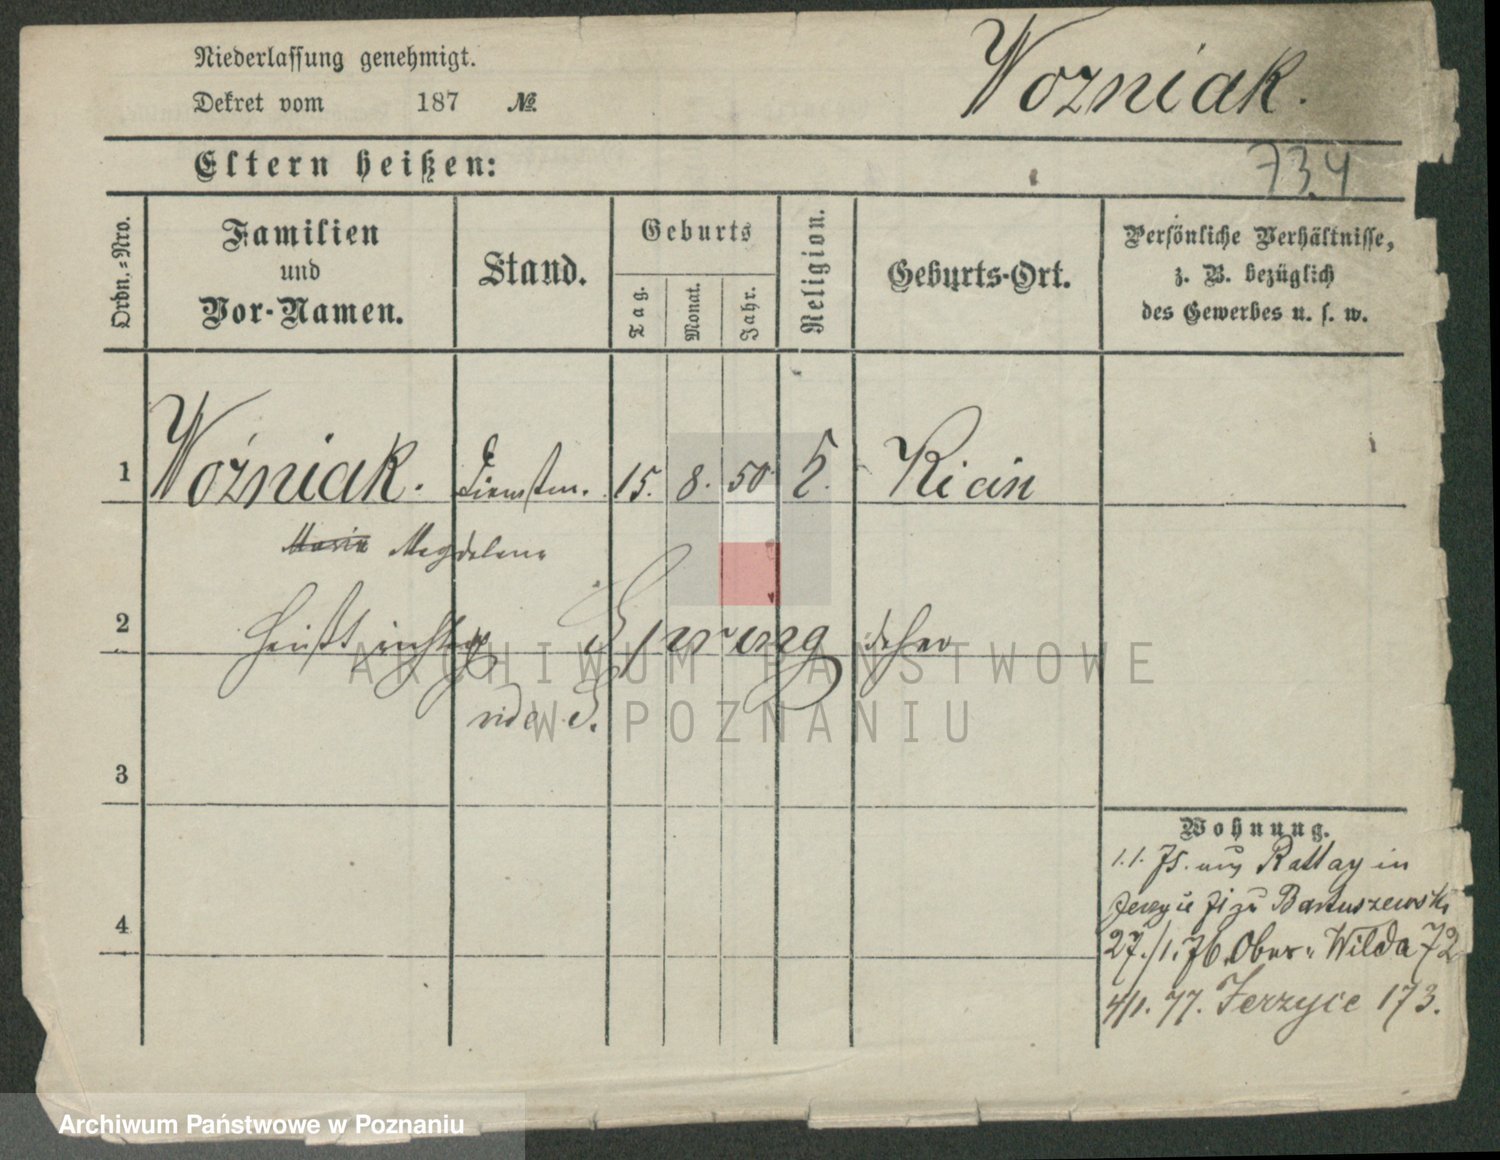 Niederlassung genehmigt.
Wozniak.
Dekret vom 187 №
Eltern heißen:
734
Ordn.=Nro.
Familien
und
Vor-Namen.
Stand.
Geburts
Tag.
Monat.
Jahr.
Religion.
Geburts-Ort.
Persönliche Verhältnisse,
z. B. bezüglich
des Gewerbes u. s. w.
1 Woźniak. Dienstm. 15. 8. 50 Kicin
Maria Magdalena
2 heißt richtig daher
vide S.
3
4
Wohnung.
1.1. 75. aus Rattay in
zu Bartuszewski
27./1. 76. Ober-Wilda 72
4/1. 77. Jerzyce 173.
ARCHIWUM PAŃSTWOWE
W POZNANIU
Archiwum Państwowe w Poznaniu